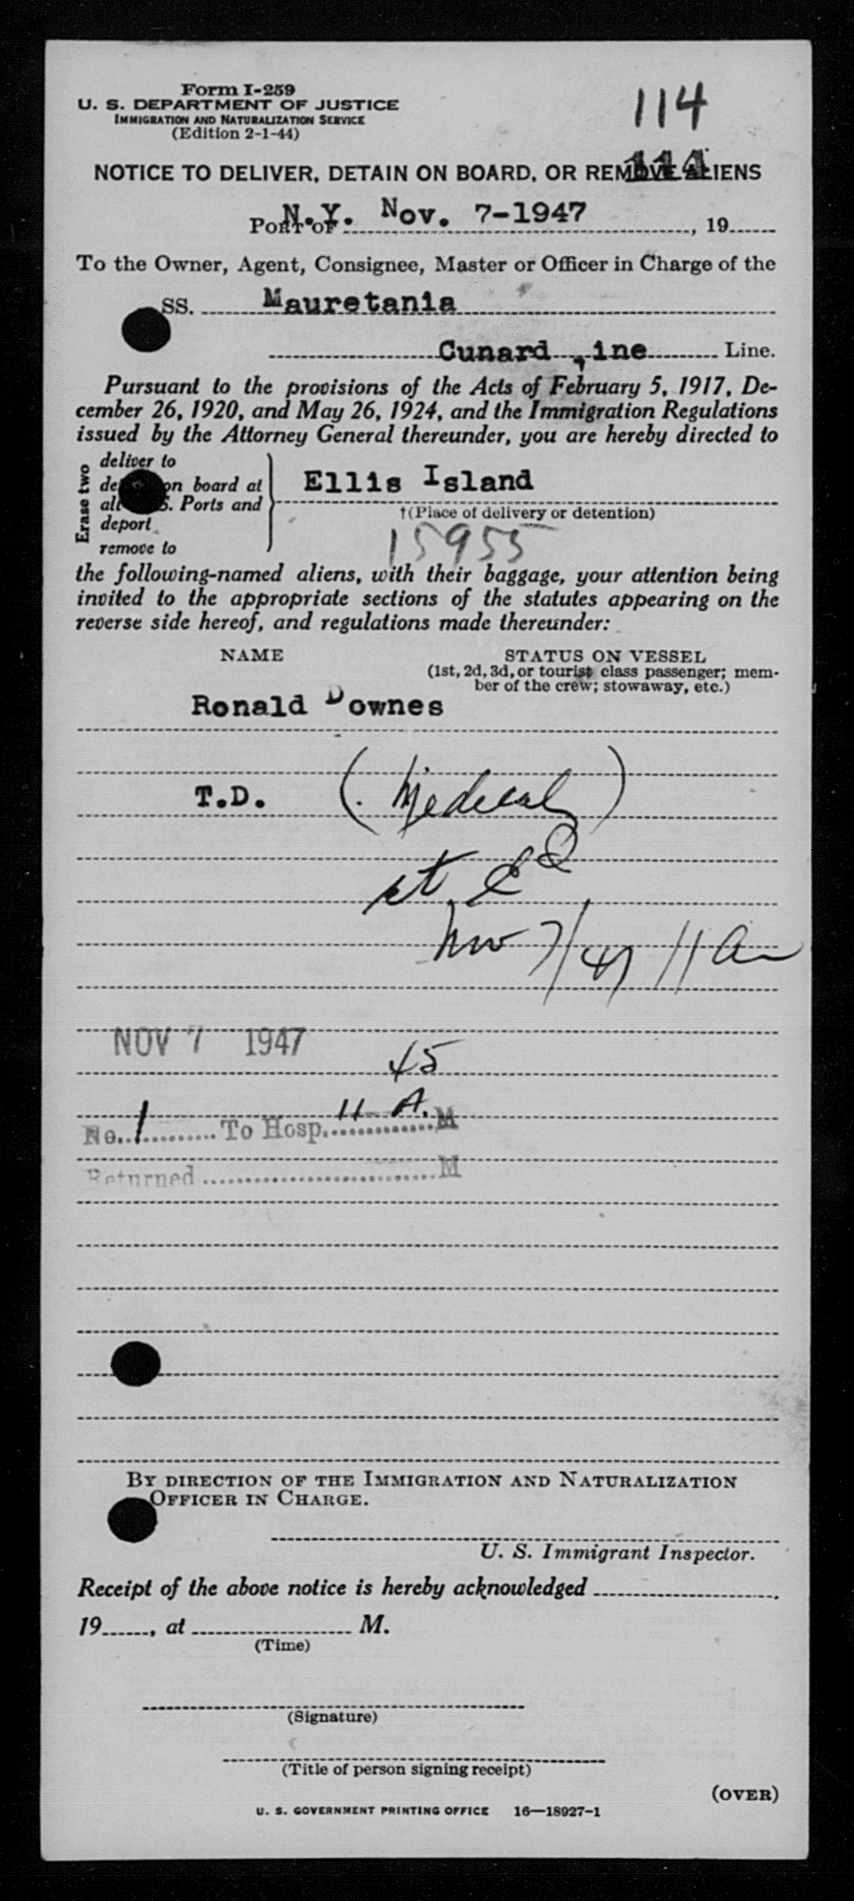 Form I-259
U. S. DEPARTMENT OF JUSTICE
IMMIGRATION AND NATURALIZATION SERVICE
(Edition 2-1-44)
114
NOTICE TO DELIVER, DETAIN ON BOARD, OR REMOVE ALIENS
114
PORT OF N.Y. Nov. 7-1947, 19
To the Owner, Agent, Consignee, Master or Officer in Charge of the
SS. Mauretania
Cunard ine Line.
Pursuant to the provisions of the Acts of February 5, 1917, De-
cember 26, 1920, and May 26, 1924, and the Immigration Regulations
issued by the Attorney General thereunder, you are hereby directed to
Erase two
deliver to
on board at
Ports and
deport
remove to
Ellis Island
†(Place of delivery or detention)
15955
the following-named aliens, with their baggage, your attention being
invited to the appropriate sections of the statutes appearing on the
reverse side hereof, and regulations made thereunder:
NAME
STATUS ON VESSEL
(1st, 2d, 3d, or tourist class passenger; mem-
ber of the crew; stowaway, etc.)
Ronald Downes
T.D. (Medical)
Nov 7/47 11 a
NOV 7 1947
45
No. 1 To Hosp. 11 A. M
Returned M
BY DIRECTION OF THE IMMIGRATION AND NATURALIZATION
OFFICER IN CHARGE.
U. S. Immigrant Inspector.
Receipt of the above notice is hereby acknowledged ,
19 , at M.
(Time)
(Signature)
(Title of person signing receipt)
(OVER)
U. S. GOVERNMENT PRINTING OFFICE 16—18927-1